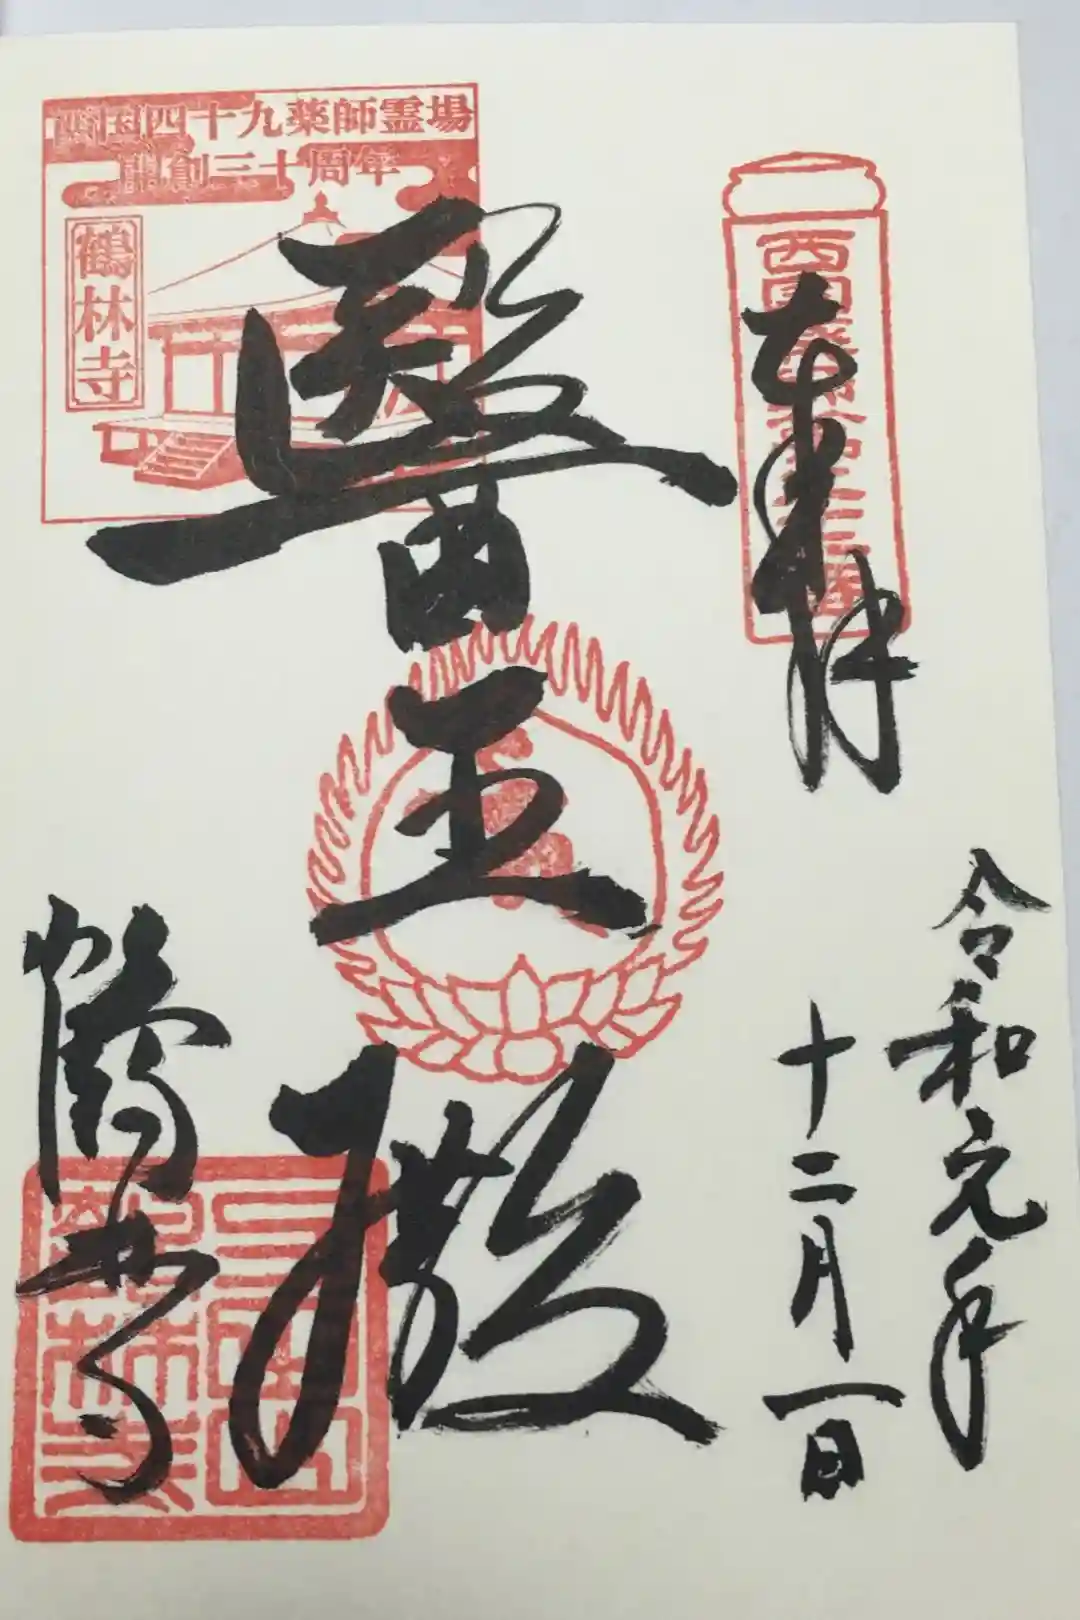 西国四十九薬師霊場
開創三十周年
鶴林寺
奉拝
令和元年
十二月一日
醫王殿
鶴林寺